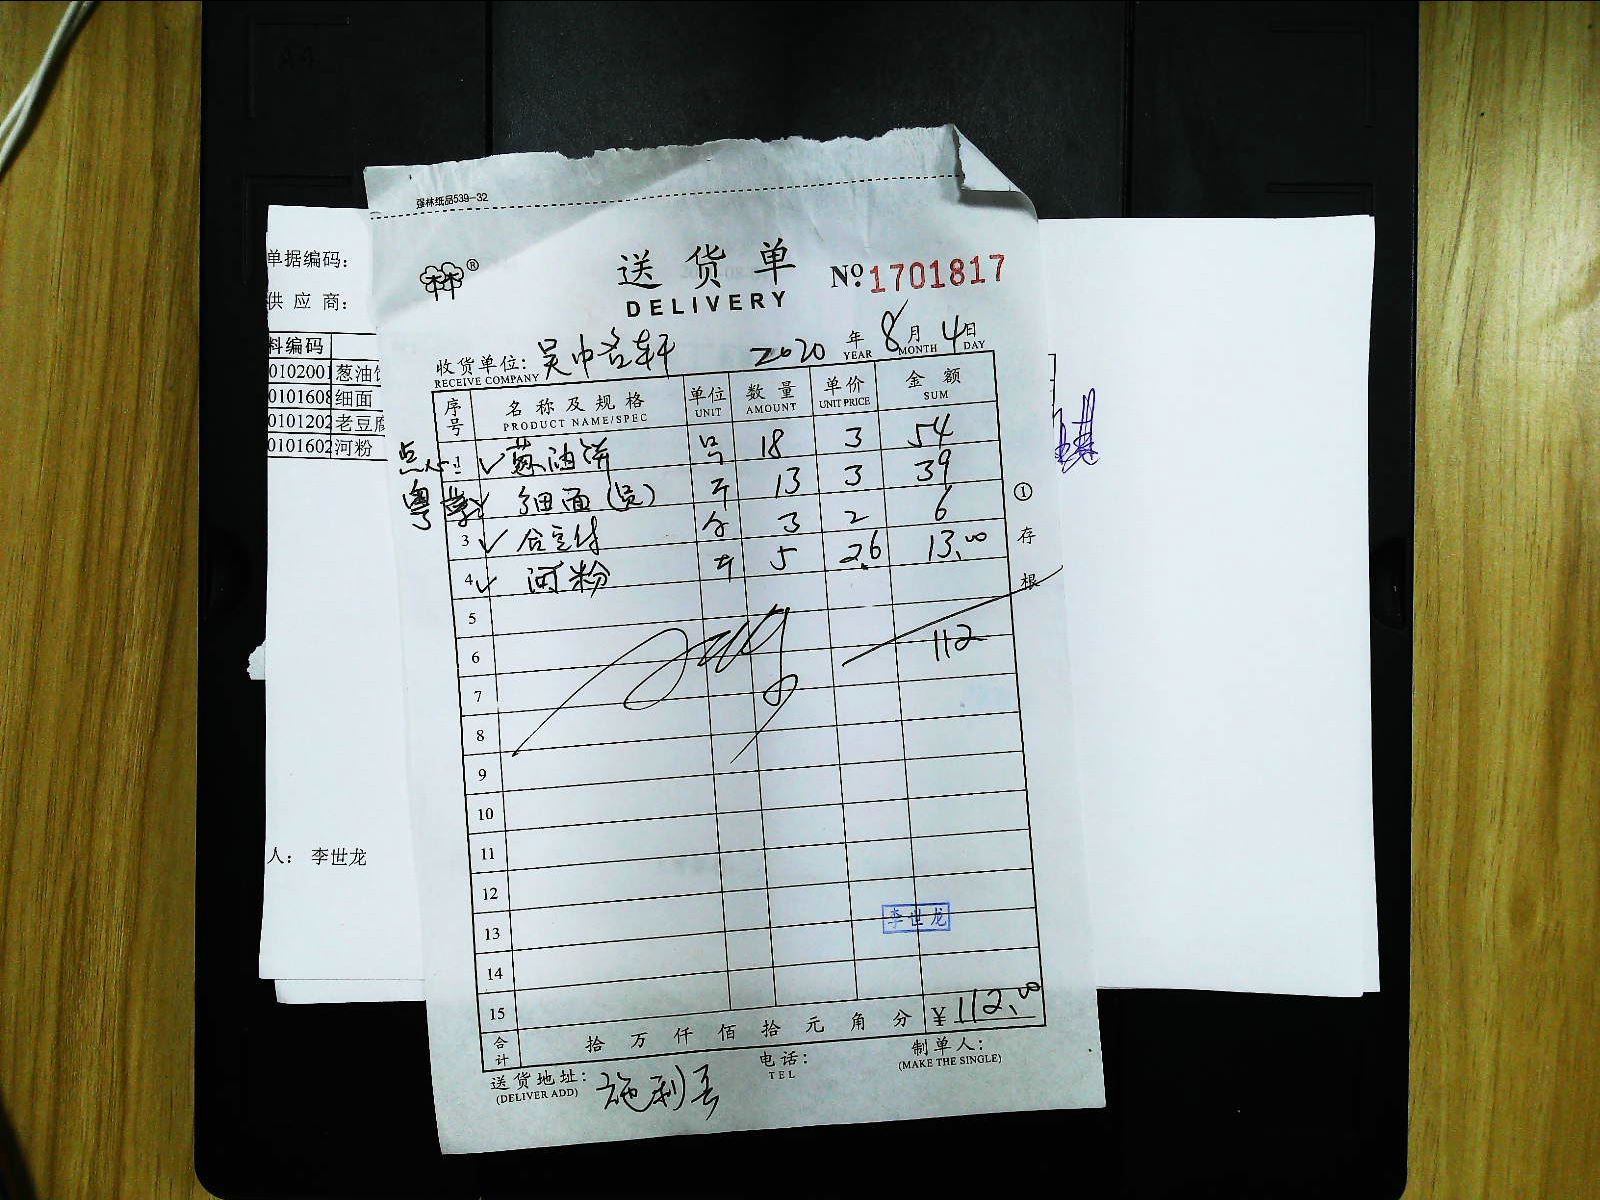 强林纸品539-32
单据编码：
供 应 商：
料编码
0102001 葱油饼
0101608 细面
0101202 老豆腐
0101602 河粉
人： 李世龙
®
送 货 单
DELIVERY
No. 1701817
收货单位： 吴中名轩 2020 年 8 月 4 日
RECEIVE COMPANY YEAR MONTH DAY
序号 名 称 及 规 格 单位 数 量 单价 金 额
PRODUCT NAME/SPEC UNIT AMOUNT UNIT PRICE SUM
点心 1 葱油饼 18 3 54
粤菜 细面 斤 13 3 39
3 3 2 6
4 河粉 斤 5 2.6 13.00
5
6 112
7
8
9
10
11
12
13 李世龙
14
15
合计 拾 万 仟 佰 拾 元 角 分 ¥ 112.00
① 存 根
送货地址： 电话： 制单人：
(DELIVER ADD) TEL (MAKE THE SINGLE)